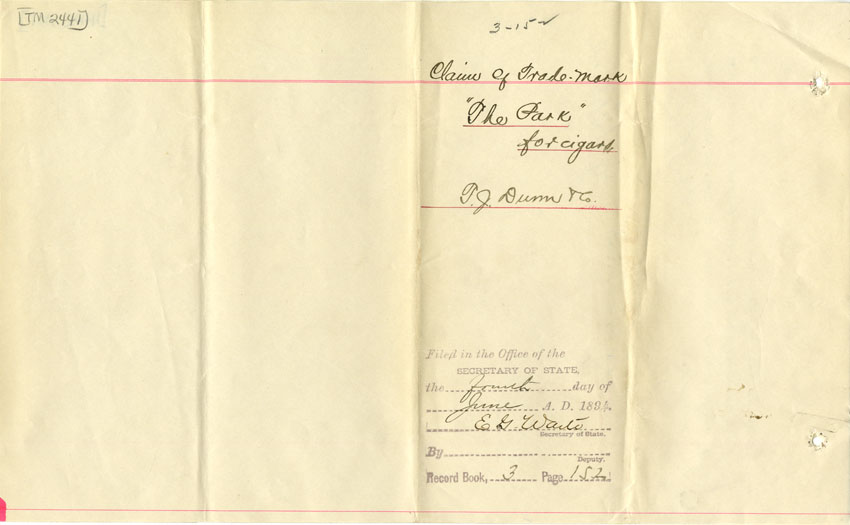 [TM 2441]
3-152
Claim of Trade-Mark
"The Park"
for cigars
T. J. Dunn & Co.
Filed in the Office of the
SECRETARY OF STATE,
the fourth day of
June A. D. 1894.
E G Waite
Secretary of State.
By
Deputy.
Record Book, 3 Page 152